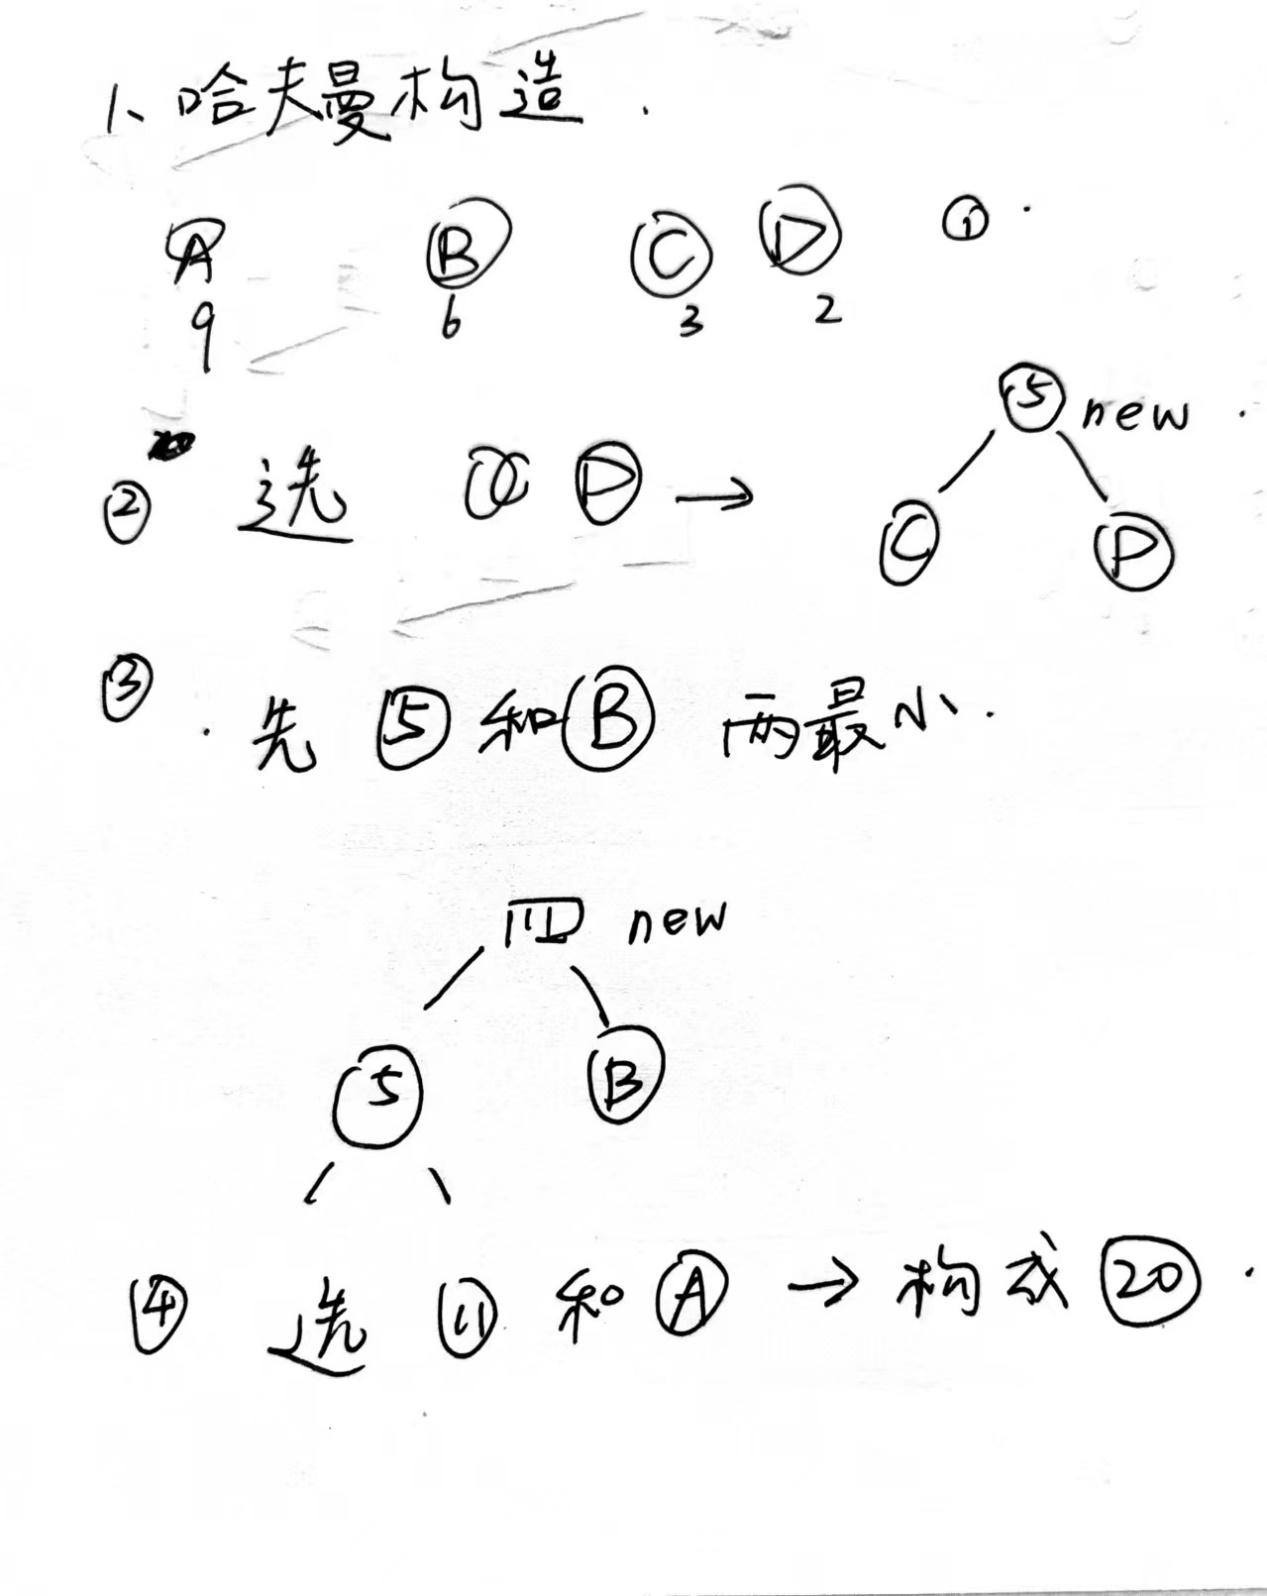 1、哈夫曼构造.
A B C D ①.
9 6 3 2
② 选 C D → 5 new.
C D
③. 先 5 和 B 两最小.
11 new
5 B
④ 选 11 和 A → 构成 20.